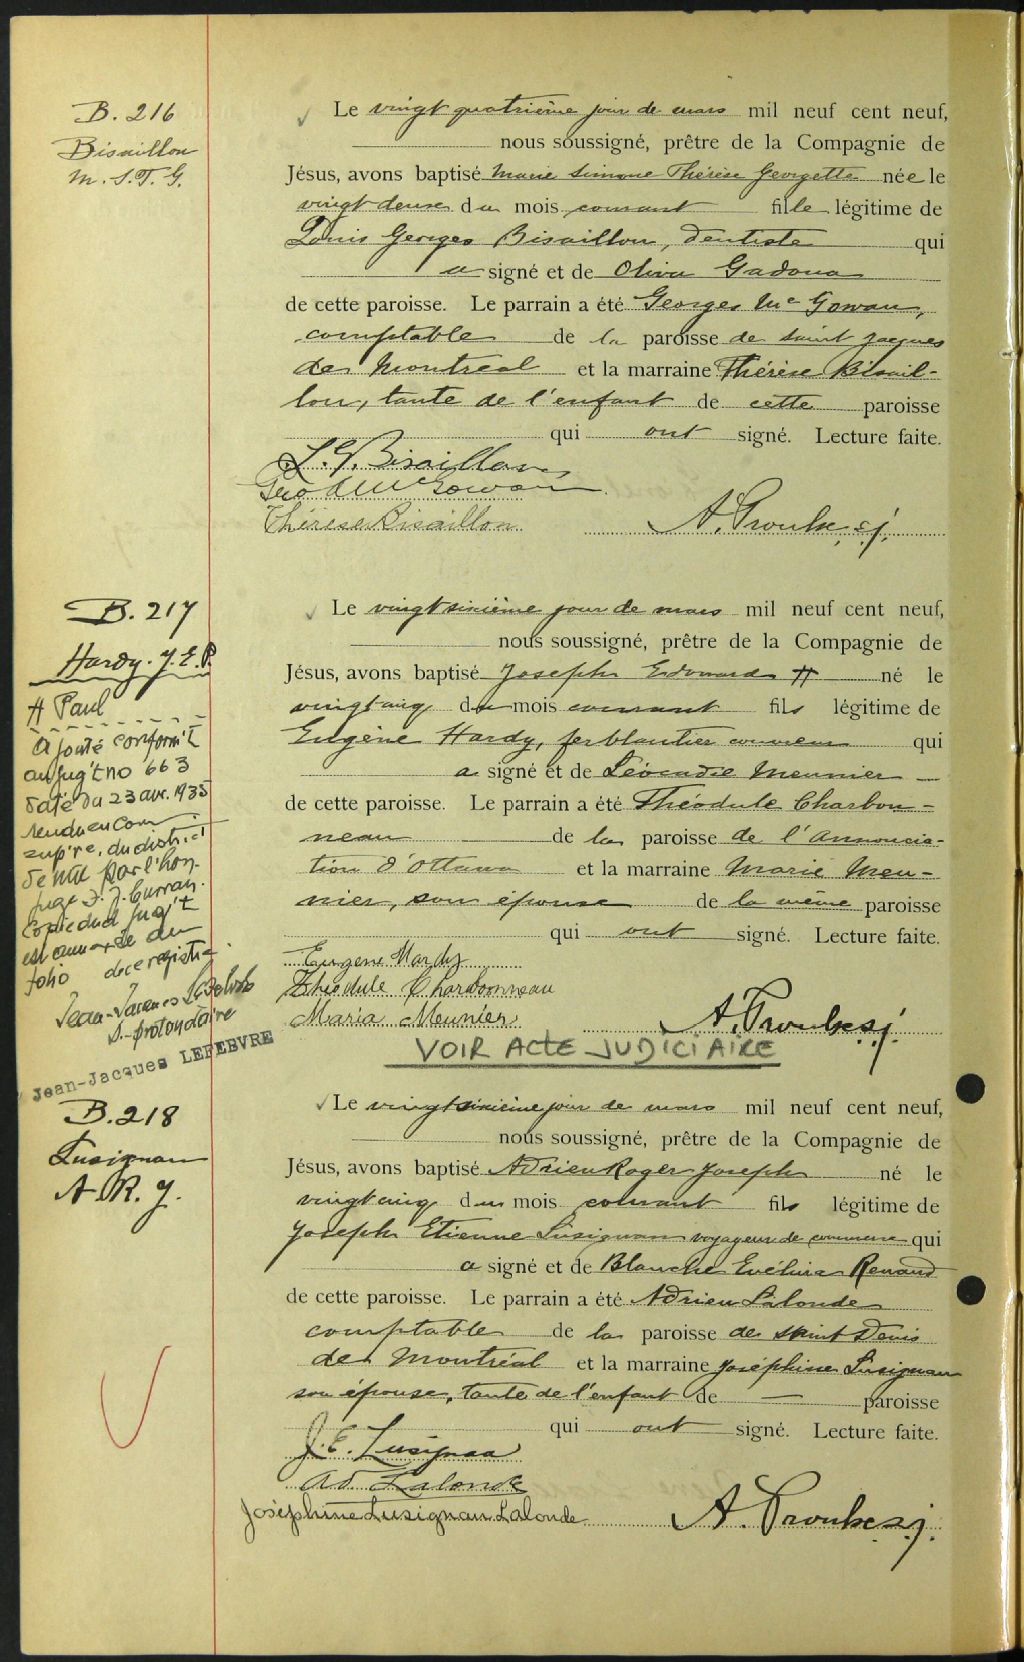 B. 216
Bisaillon
M. S. T. G.
Le vingt quatrième jour de mars mil neuf cent neuf,
nous soussigné, prêtre de la Compagnie de
Jésus, avons baptisé Marie Simone Thérèse Georgette née le
vingt deux du mois courant fille légitime de
Louis Georges Bisaillon, dentiste qui
a signé et de Oliva Gadoua
de cette paroisse. Le parrain a été Georges McGowan,
comptable de la paroisse de saint Jacques
de Montréal et la marraine Thérèse Bisail-
lon, tante de l'enfant de cette paroisse
qui ont signé. Lecture faite.
L. G. Bisaillon
Geo McGowan
Thérèse Bisaillon
A. Proulx s.j.
B. 217
Hardy. J. E. P.
H Paul
ajouté conform't
au jug't no 663
daté du 23 avr. 1935
rendu en cour
sup're. du district
de Mtl par l'hon.
juge J. Curran.
Copie dud jug't
est annexée au
folio de ce registre
Jean-Jacques Lefebvre
D.-protonotaire
Jean-Jacques LEFEBVRE
Le vingt sixième jour de mars mil neuf cent neuf,
nous soussigné, prêtre de la Compagnie de
Jésus, avons baptisé Joseph Edouard H né le
vingt cinq du mois courant fils légitime de
Eugène Hardy, ferblantier couvreur qui
a signé et de Léocadie Meunier
de cette paroisse. Le parrain a été Théodule Charbon-
neau de la paroisse de l'Annoncia-
tion d'Ottawa et la marraine Marie Meu-
nier, son épouse de la même paroisse
qui ont signé. Lecture faite.
Eugene Hardy
Théodule Charbonneau
Maria Meunier
A. Proulx s.j.
VOIR ACTE JUDICIAIRE
B. 218
Lusignan
A. R. J.
Le vingt sixième jour de mars mil neuf cent neuf,
nous soussigné, prêtre de la Compagnie de
Jésus, avons baptisé Adrien Roger Joseph né le
vingt cinq du mois courant fils légitime de
Joseph Etienne Lusignan voyageur de commerce qui
a signé et de Blanche Evélina Renaud
de cette paroisse. Le parrain a été Adrien Lalonde
comptable de la paroisse de saint Denis
de Montréal et la marraine Joséphine Lusignan
son épouse, tante de l'enfant de — paroisse
qui ont signé. Lecture faite.
J. E. Lusignan
Ad. Lalonde
Joséphine Lusignan Lalonde
A. Proulx s.j.